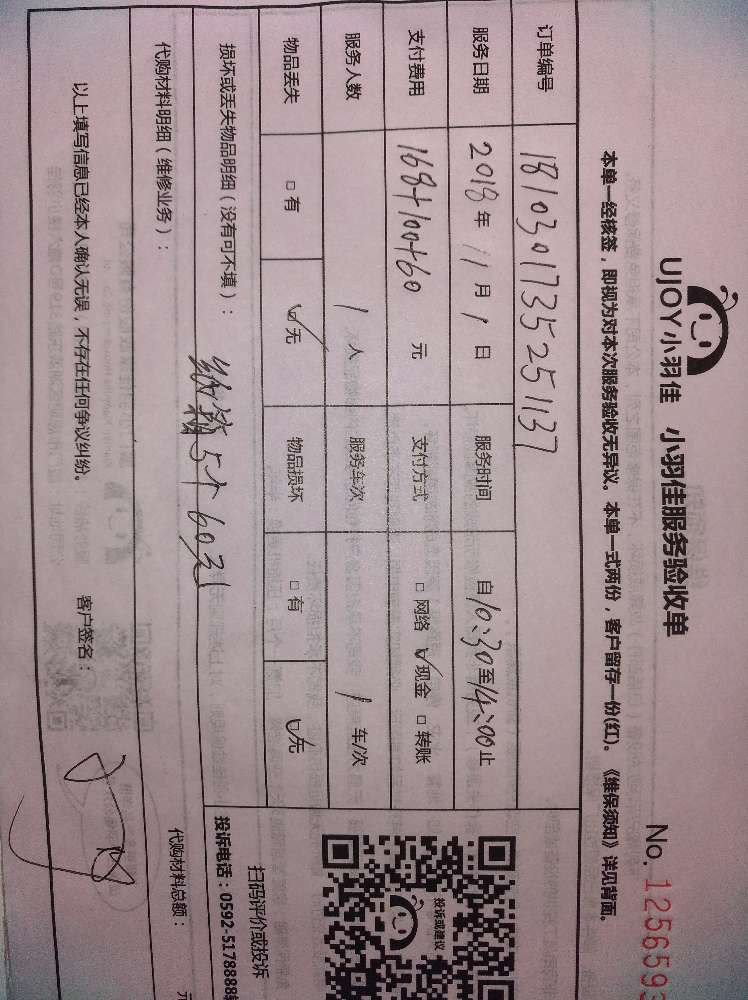 UJOY小羽佳 小羽佳服务验收单
No. 1256593
本单一经核签，即视为对本次服务验收无异议。本单一式两份，客户留存一份(红)。《维保须知》详见背面。
订单编号 1810301735251137
服务日期 2018年11月1日 服务时间 自10:30至14:00止
支付费用 168+100+60 元 支付方式 □网络 ☑现金 □转账
服务人数 1人 服务车次 1车/次
物品丢失 □有 ☑无 物品损坏 □有 ☑无
投诉或建议
扫码评价或投诉
损坏或丢失物品明细（没有可不填）：
投诉电话：0592-5178888转
纸箱5个60元
代购材料明细（维修业务）：
代购材料总额： 元
以上填写信息已经本人确认无误，不存在任何争议纠纷。 客户签名：